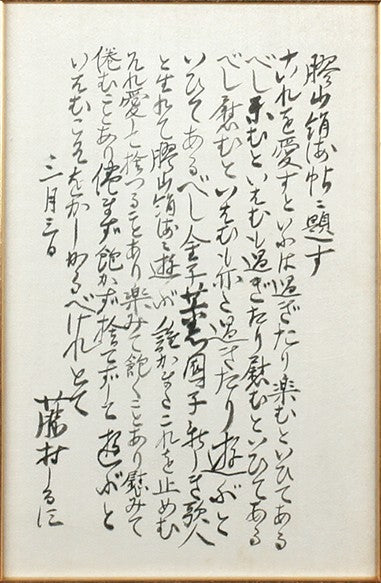 膠山絹海帖ニ題す
これを愛すといふは過ぎたり楽むといひてある
べし楽むといえむも過ぎたり慰むといひてある
べし慰むといえむも亦た過ぎたり遊ぶと
いひてあるべし金子薫園子新しき歌人
と生れて膠山絹海に遊ぶ誰かまたこれを止めむ
それ愛して捨つることあり楽みて飽くことあり慰みて
倦むことあり倦まず飽かず捨てずして遊ぶと
いえむこそをかしかるべけれとて
三月三日
藤村しるす